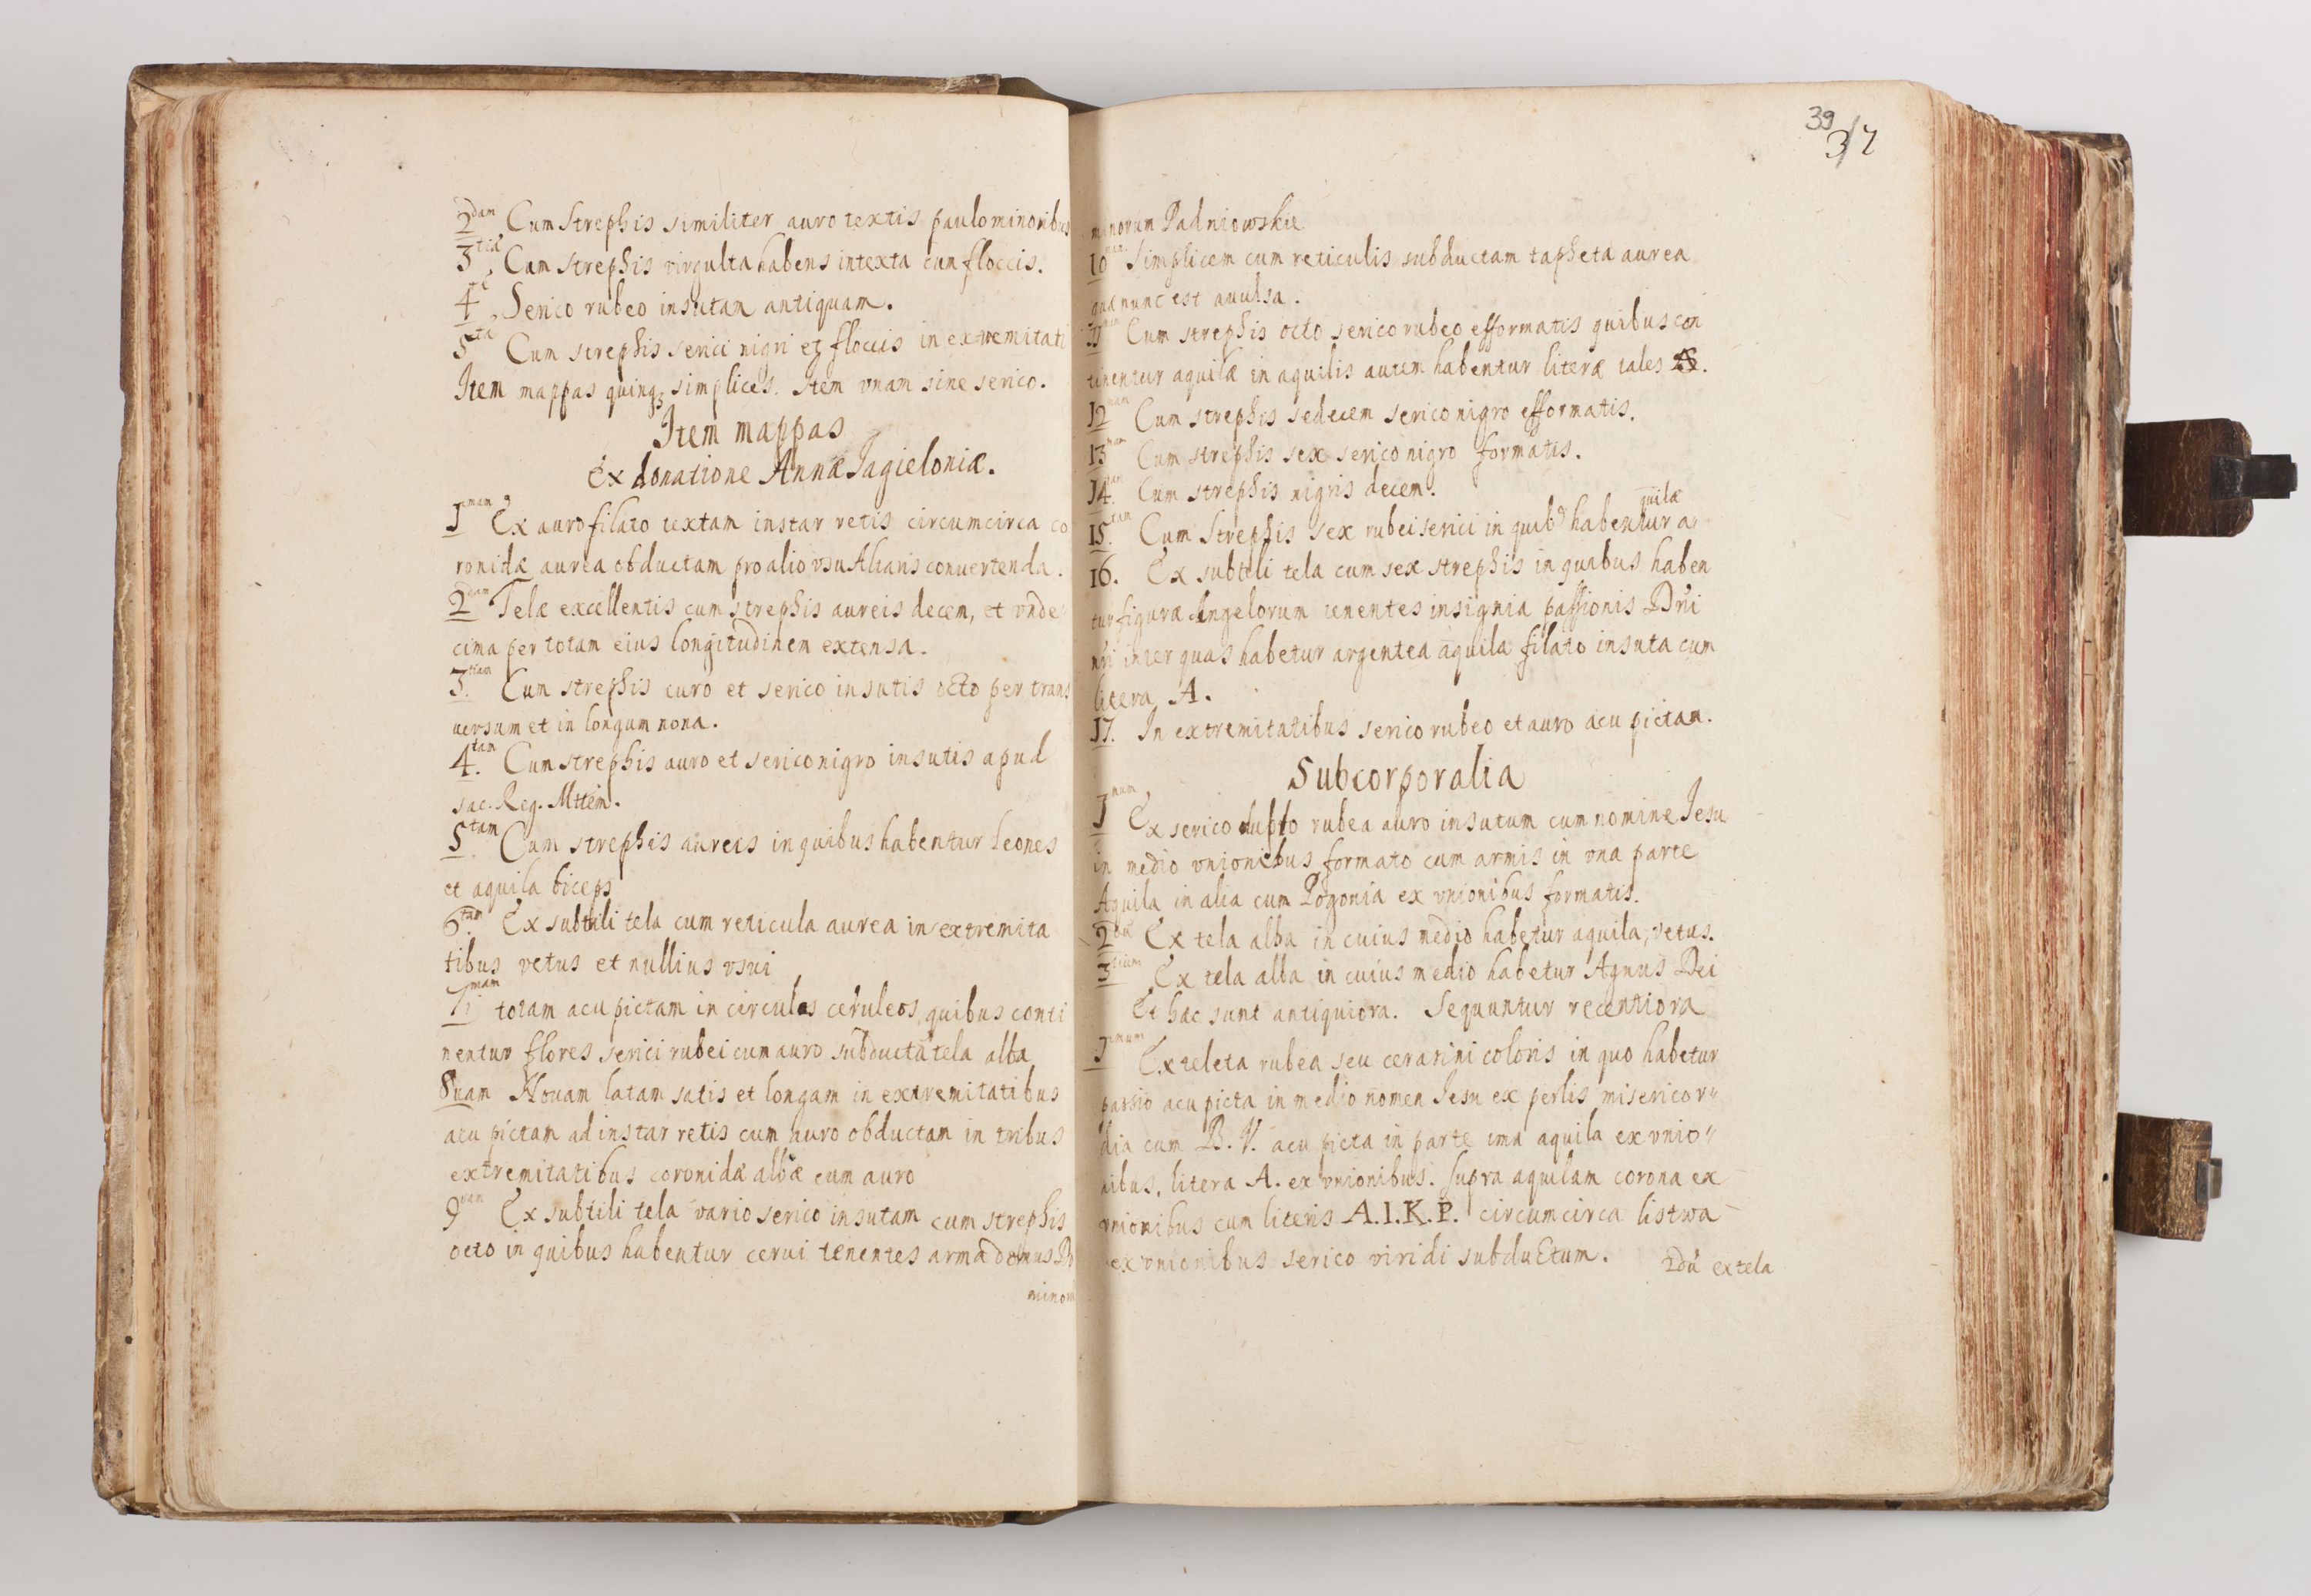 2dam Cum Strephis similiter auro textis paulo minoribus
3tia, Cum strephis virgulta habens intexta cum floccis.
4te, Serico rubeo insutam antiquam.
5ta Cum strephis serici nigri et floccis in extremitati
Item mappas quinq3 simplices. Item vnam sine serico.
Item mappas
Ex donatione Annæ Jagieloniæ.
1mam Ex auro filato textam instar retis circumcirca co
ronidæ aurea obductam pro alio vsu Altaris conuertenda.
2dam Telæ excellentis cum strephis aureis decem, et vnde
cima per totam eius longitudinem extensa.
3.tiam Cum strephis auro et serico insutis octo per trans
uersum et in longum nona.
4.tam Cum strephis auro et serico nigro insutis apud
sac. Reg. Mttem.
5tam Cum strephis aureis in quibus habentur Leones
et aquila biceps
6.tam Ex subtili tela cum reticula aurea in extremita
tibus vetus et nullius vsui
7mam totam acu pictam in circulos ceruleos quibus conti
nentur flores serici rubei cum auro subducta tela alba
8uam Nouam latam satis et longam in extremitatibus
acu pictam ad instar retis cum auro obductam in tribus
extremitatibus coronidæ albæ cum auro
9nam Ex subtili tela vario serico insutam cum strephis
octo in quibus habentur cerui tenentes arma domus D
minor
39
37
minorum Padniowskie
10 Simplicem cum reticulis subductam tapheta aurea
quæ nunc est auulsa.
11 Cum strephis octo serico rubeo efformatis quibus con
tinentur aquilæ in aquilis autem habentur literæ tales AS.
12mam Cum strephis sedecem serico nigro efformatis.
13 Cum strephis sex serico nigro formatis.
14. Cum strephis nigris decem.
quilæ
15.tam Cum Strephis sex rubei serici in quib9 habentur a
16. Ex subtili tela cum sex strephis in quibus haben
tur figuræ Angelorum tenentes insignia passionis Dni
nri inter quas habetur argentea aquila filato insuta cum
litera A.
17. In extremitatibus serico rubeo et auro acu pictam.
Subcorporalia
1mum Ex serico rubea auro insutum cum nomine Iesu
in medio vnionibus formato cum armis in vna parte
Aquila in alia cum Pogonia ex vnionibus formatis.
2du Ex tela alba in cuius medio habetur aquila, vetus.
3tium Ex tela alba in cuius medio habetur Agnus Dei
Et hæc sunt antiquiora. Sequuntur recentiora
1mum Ex teleta rubea seu cerasini coloris in quo habetur
passio acu picta in medio nomen Iesu ex perlis misericor"
dia cum B. V. acu picta in parte ima aquila ex vnio"
nibus, litera A. ex vnionibus. Supra aquilam corona ex
vnionibus cum literis A.I.K.P. circumcirca listwa
ex vnionibus serico viridi subductum. 2dũ ex tela